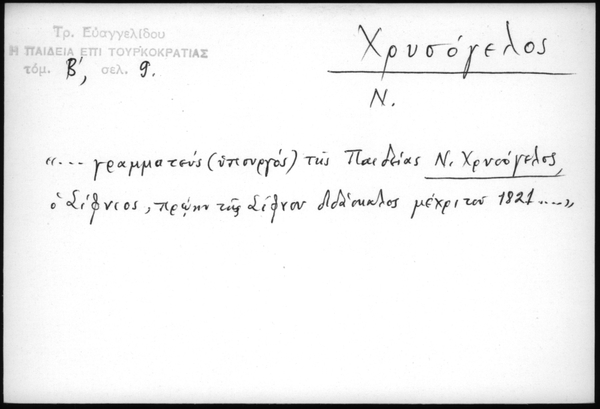 Τρ. Εὐαγγελίδου
Η ΠΑΙΔΕΙΑ ΕΠΙ ΤΟΥΡΚΟΚΡΑΤΙΑΣ
τόμ. Β', σελ. 9.
Χρυσόγελος
Ν.
«... γραμματεύς (ὑπουργός) τῆς Παιδείας Ν. Χρυσόγελος,
ὁ Σίφνιος, πρώην τῆς Σίφνου διδάσκαλος μέχρι τοῦ 1821 ....»